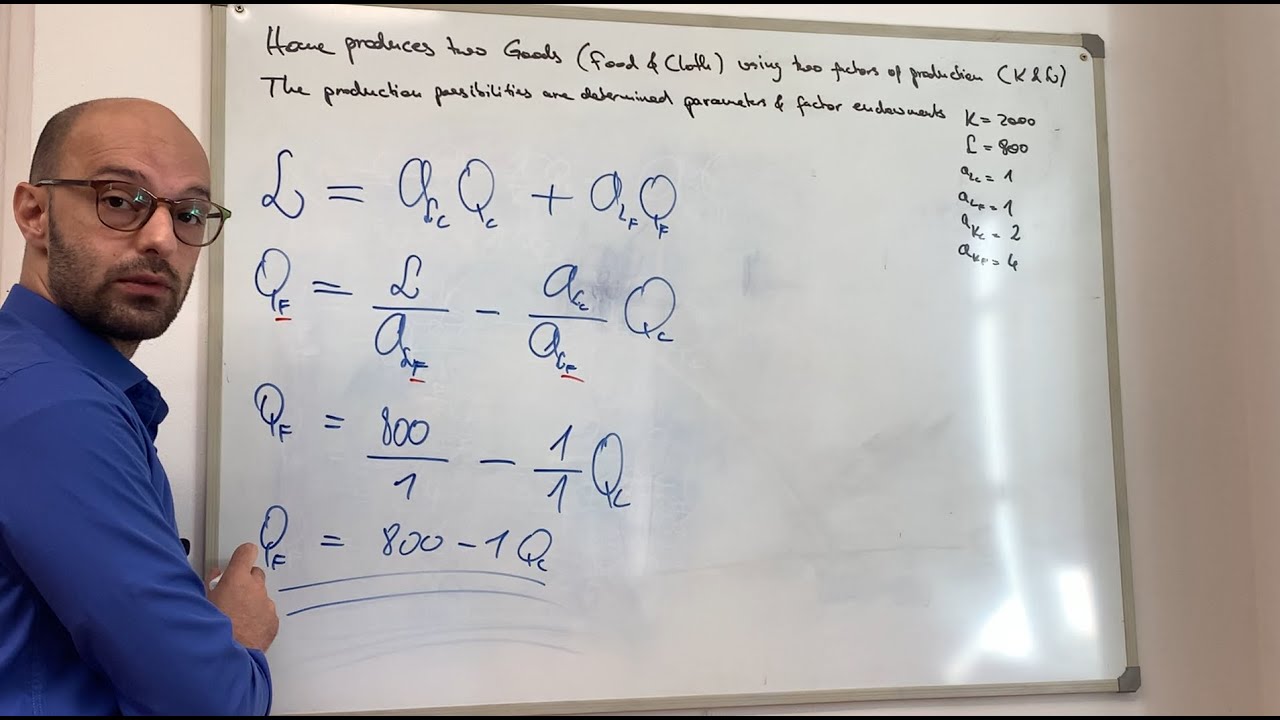 Home produces two Goods (Food & Cloth) using two factors of production (K & L)
The production possibilities are determined parameters & factor endowments
K = 2000
L = 800
a_LC = 1
a_LF = 1
a_KC = 2
a_KF = 4
L = a_LC Q_C + a_LF Q_F
Q_F = L / a_LF - a_LC / a_LF Q_C
Q_F = 800 / 1 - 1 / 1 Q_C
Q_F = 800 - 1 Q_C